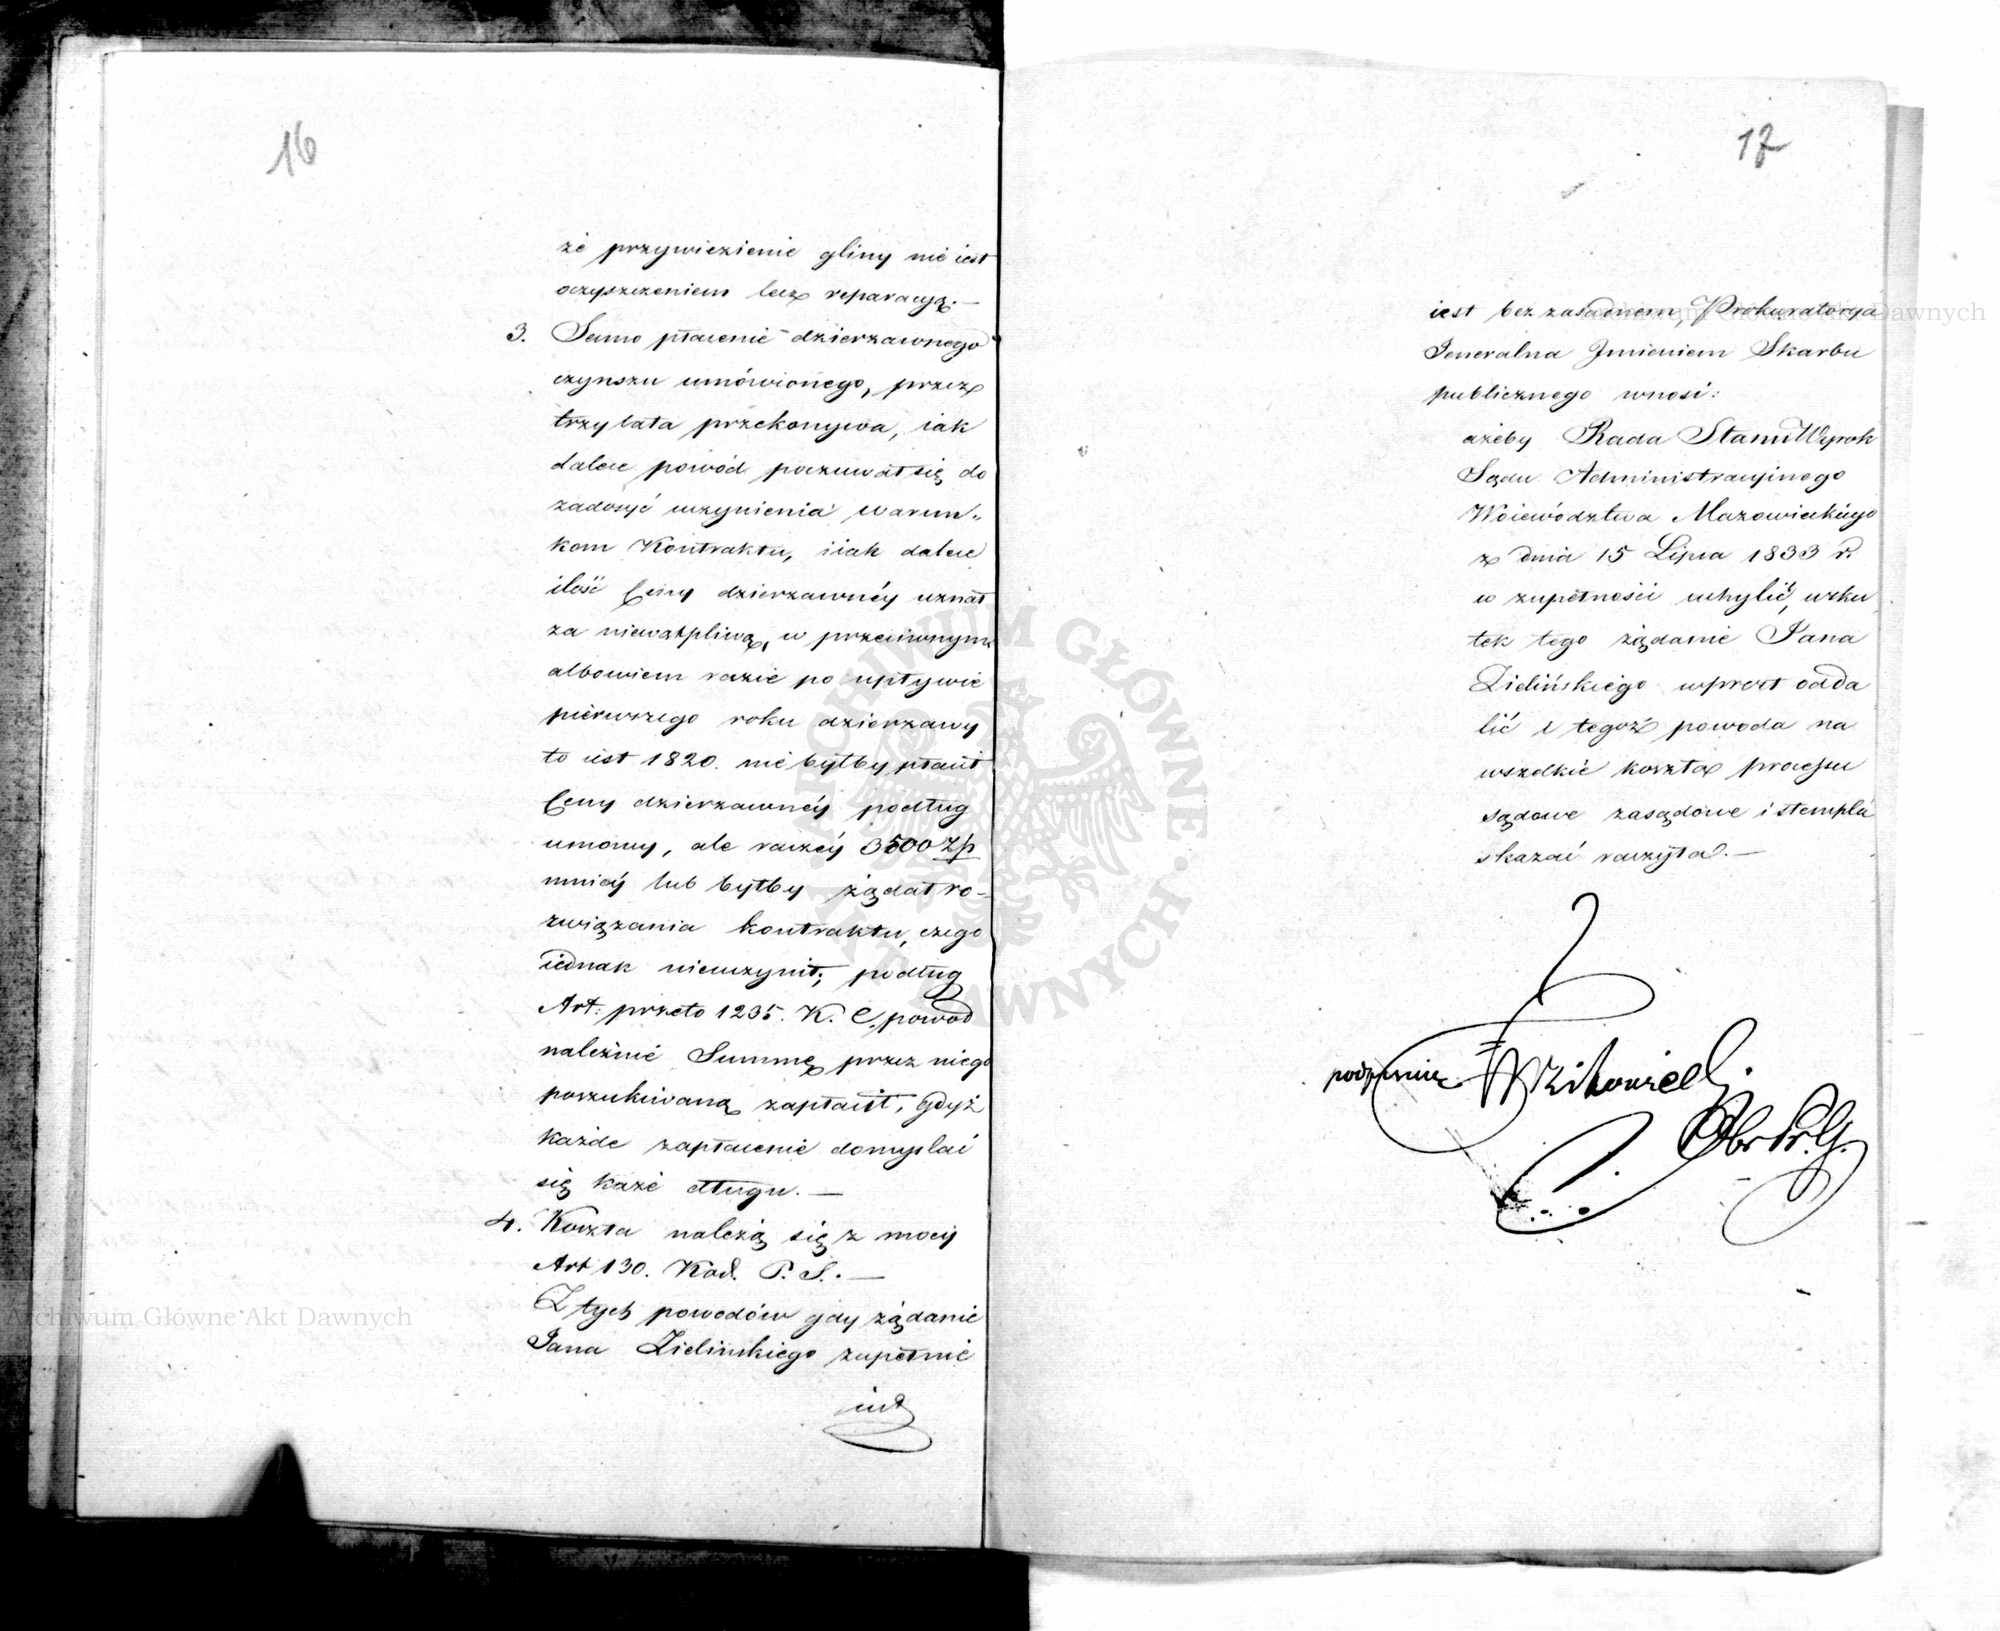 16
że przywiezienie gliny nie iest
oczyszczeniem lecz reparacyą. —
3. Samo płacenie dzierzawnego
czynszu umówionego, przez
trzy lata przekonywa, iak
dalece powód poczuwał się do
zadosyć uczynienia warun„
kom Kontraktu, iiak dalece
ilość Ceny dzierzawnéy uznał
za niewątpliwą, w przeciwnym
albowiem razie po upływie
pierwszego roku dzierzawy
to iest 1820. nie byłby płacił
Ceny dzierzawnéy podług
umowy, ale raczéy 3500 Zp
mniéy lub byłby żądał ro-
związania kontraktu, czego
iednak nieuczynił; podług
Art: przeto 1235. K. C. powód
należnie Summę przez niego
poszukiwaną zapłacił, gdyż
każde zapłacenie domyslać
się każe długu. —
4. Koszta należą się z mocy
Art 130. Kod. P. S. —
Z tych powodów gdy żądanie
Jana Zielińskiego zupełnie
iest
17
iest bez zasadnem, Prokuratorya
Jeneralna Jmieniem Skarbu
publicznego wnosi:
ażeby Rada Stanu Wyrok
Sądu Administracyinego
Woiewództwa Mazowieckiego
z dnia 15 Lipca 1833 r.
w zupełności uchylić, wsku
tek tego żądanie Jana
Zielińskiego wprost odda
lić i tegoż powoda na
wszelkie koszta processu
sądowe zasądowe i stempla
skazać raczyła. —
Archiwum Główne Akt Dawnych
Archiwum Główne Akt Dawnych
ARCHIWUM GŁÓWNE AKT DAWNYCH